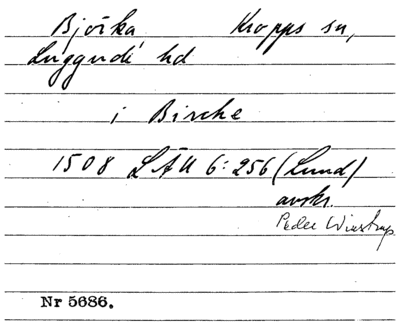 Björka, Kropps sn,
Luggude hd
i Bircke
1508 LÄU 6: 256 (Lund)
avskr.
Peder Winstrup
Nr 5686.